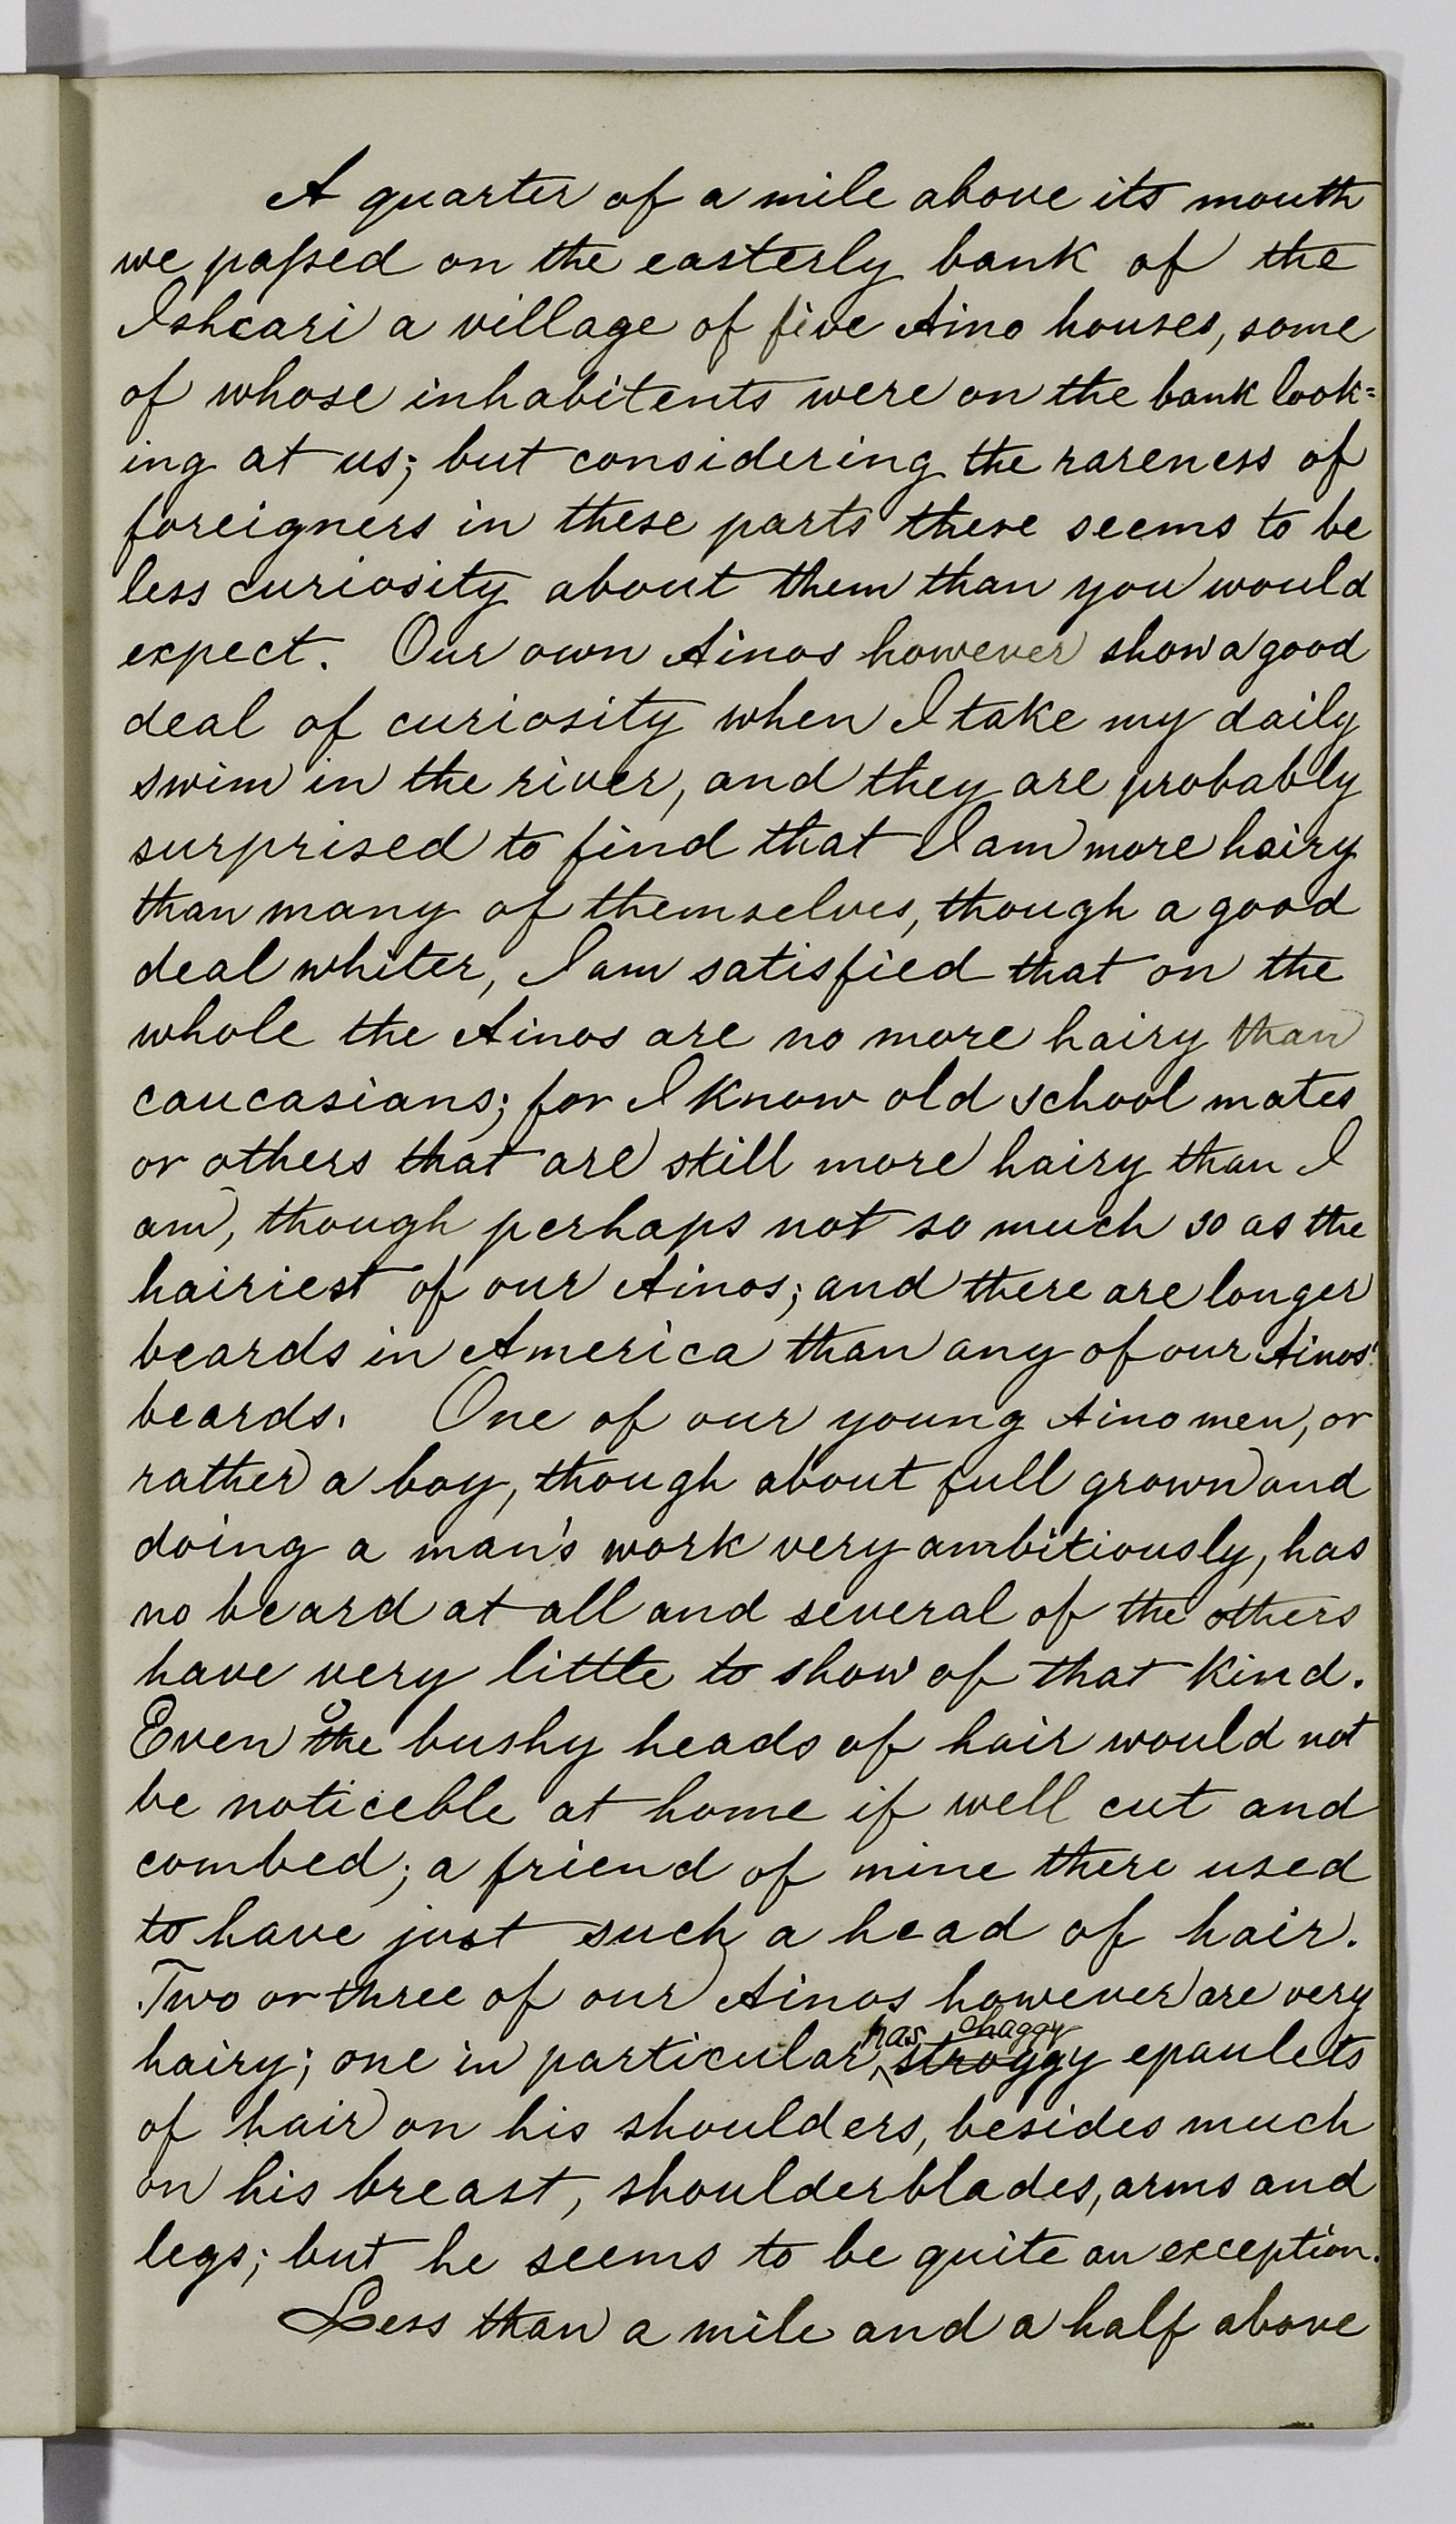 A quarter of a mile above its mouth
we passed on the easterly bank of the
Ishcari a village of five Aino houses, some
of whose inhabitents were on the bank look=
ing at us; but considering the rareness of
foreigners in these parts there seems to be
less curiosity about them than you would
expect. Our own Ainos however show a good
deal of curiosity when I take my daily
swim in the river, and they are probably
surprised to find that I am more hairy
than many of themselves, though a good
deal whiter, I am satisfied that on the
whole the Ainos are no more hairy than
caucasians; for I know old school mates
or others that are still more hairy than I
am, though perhaps not so much so as the
hairiest of our Ainos; and there are longer
beards in America than any of our Ainos'
beards. One of our young Aino men, or
rather a boy, though about full grown and
doing a man's work very ambitiously, has
no beard at all and several of the others
have very little to show of that kind.
Even the bushy heads of hair would not
be noticeble at home if well cut and
combed; a friend of mine there used
to have just such a head of hair.
Two or three of our Ainos however are very
hairy; one in particular has shaggy stroggy epaulets
of hair on his shoulders, besides much
on his breast, shoulderblades, arms and
legs; but he seems to be quite an exception.
Less than a mile and a half above